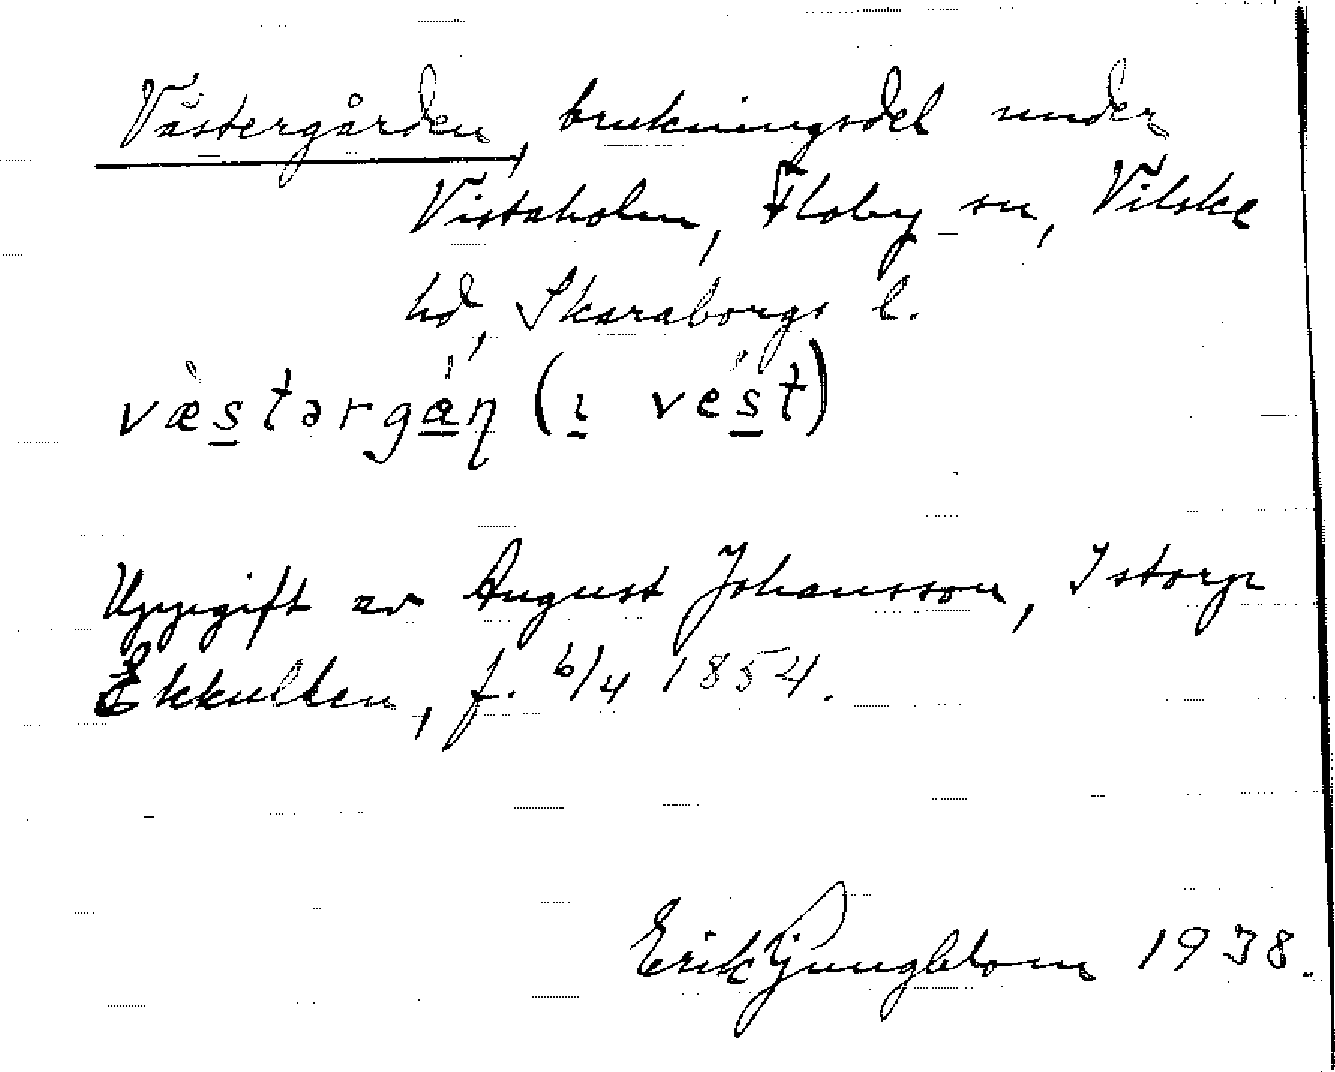 Västergården, brukningsdel under
Vistaholm, Floby sn, Vilske
hd, Skaraborgs l.
væ̀stərgán (ı vést)
Uppgift av August Johansson, Istorp
Ekkullen, f. 6/4 1854.
Erik Ljungblom 1938.